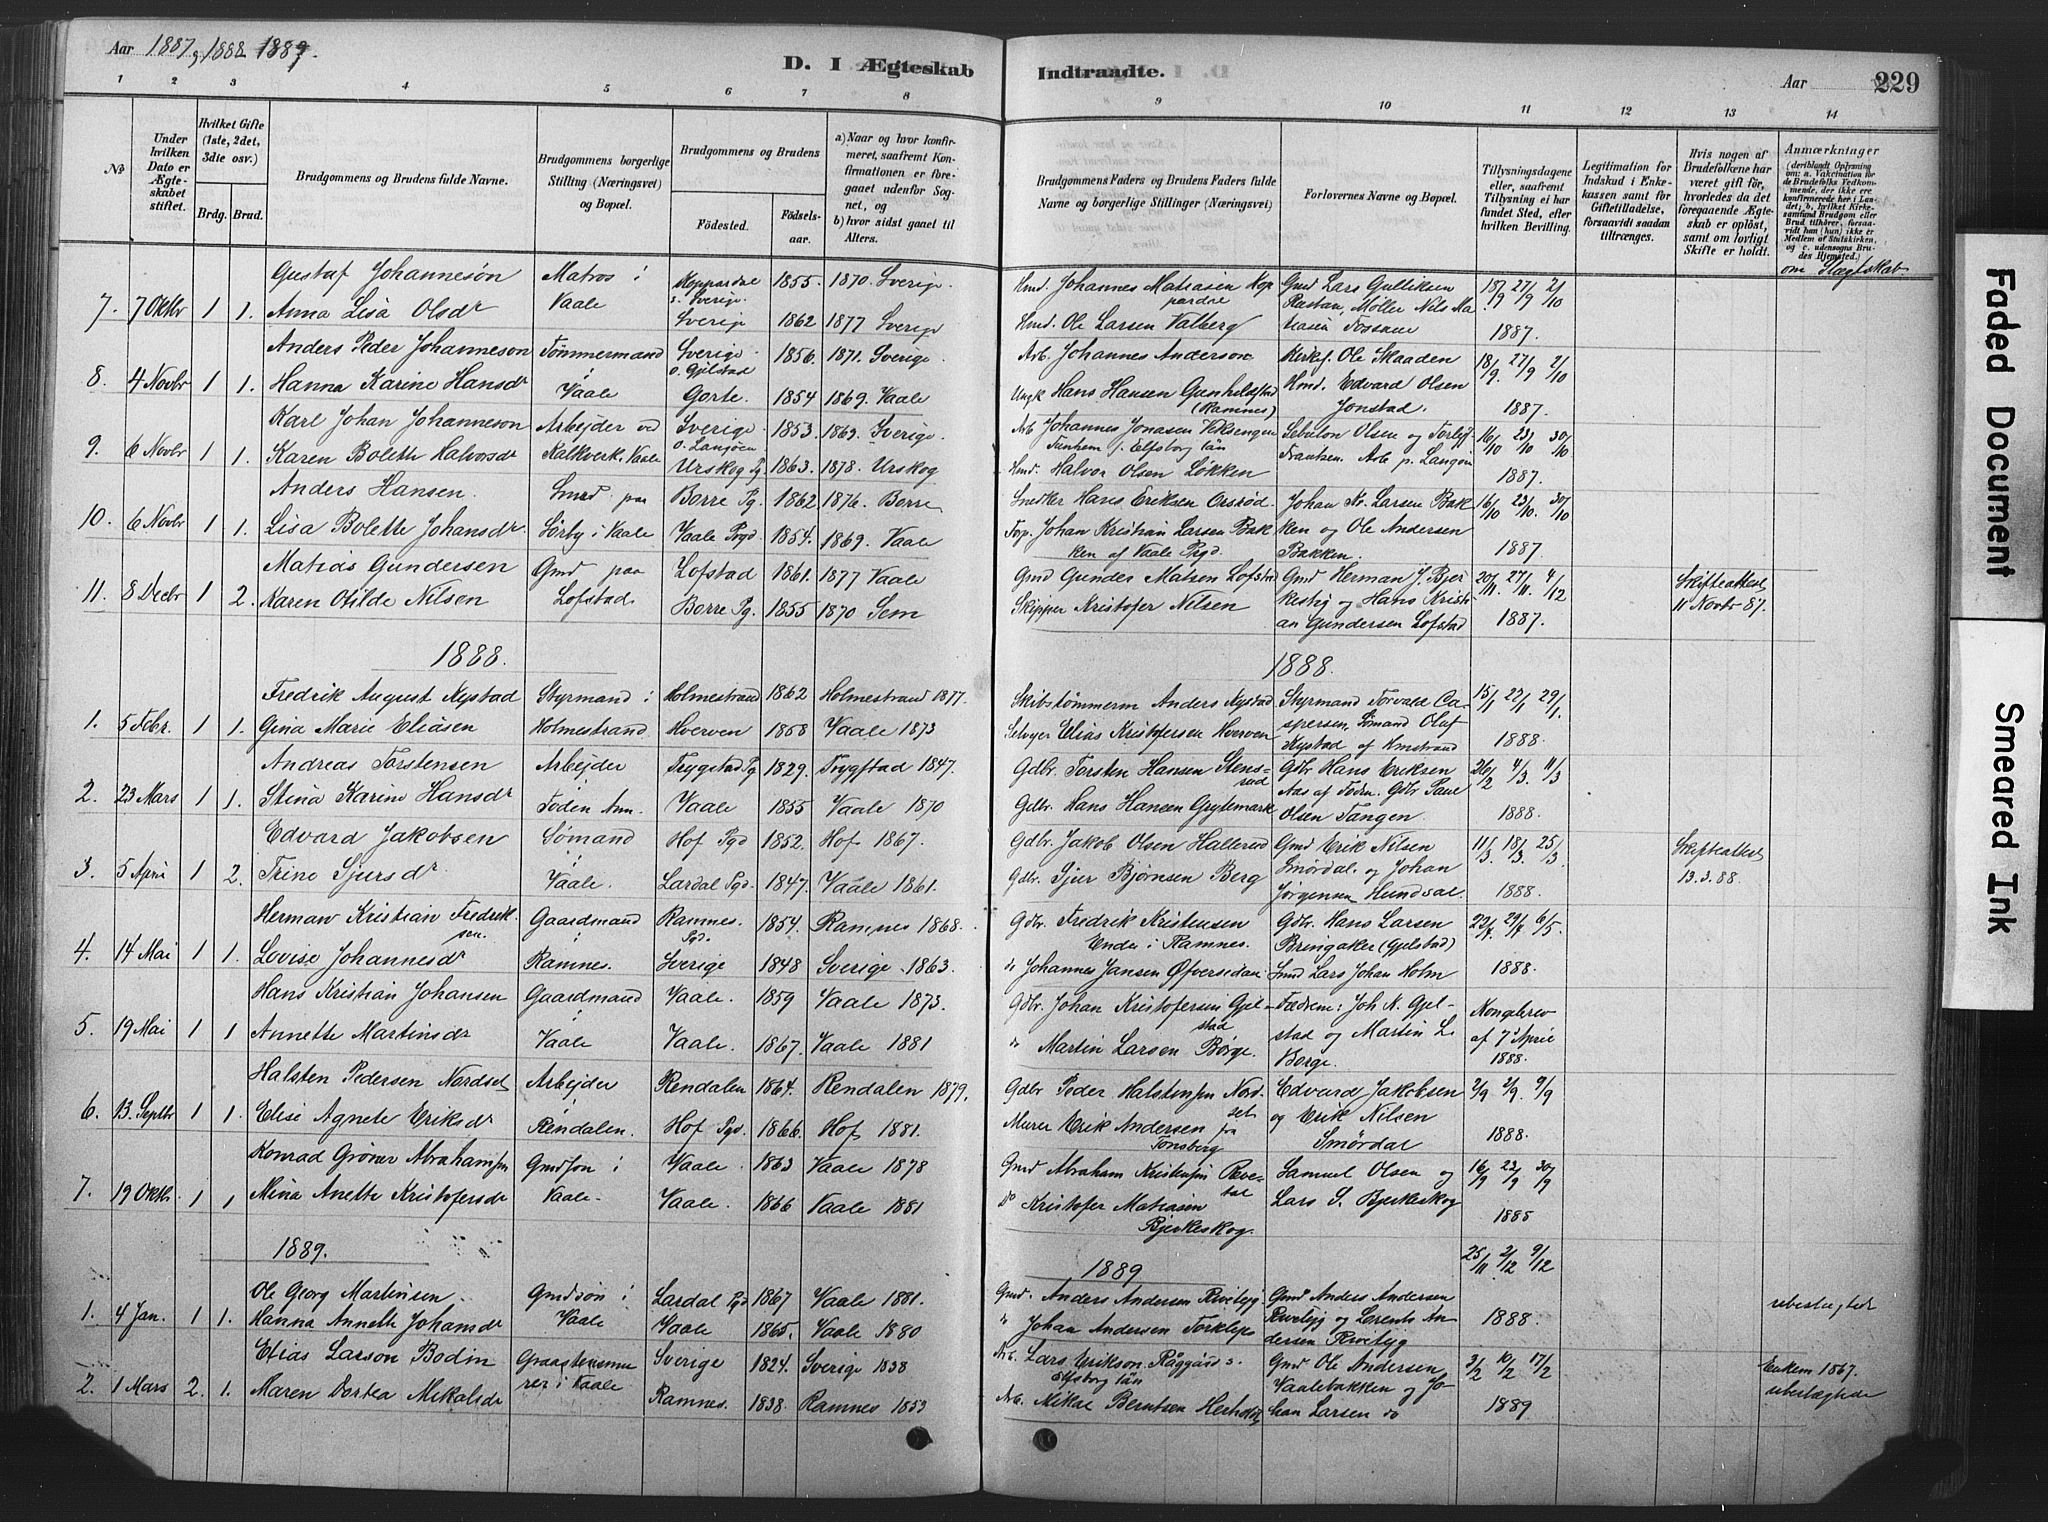 Aar 1887, 1888 1889.
D. I Ægteskab Indtraadte.
Aar 229
1 2 3 4 5 6 7 8 9 10 11 12 13 14
No
Under hvilken Dato er Ægteskabet stiftet.
Hvilket Gifte (1ste, 2det, 3die osv.)
Brdg. Brud.
Brudgommens og Brudens fulde Navne.
Brudgommens borgerlige Stilling (Næringsvei) og Bopæl.
Brudgommens og Brudens
Fødested. Fødselsaar.
a) Naar og hvor konfirmeret, saafremt Konfirmationen er foregaaet udenfor Sognet, og
b) hvor sidst gaaet til Alters.
Brudgommens Faders og Brudens Faders fulde Navne og borgerlige Stillinger (Næringsvei)
Forlovernes Navne og Bopæl.
Tillysningsdagene eller, saafremt Tillysning ei har fundet Sted, efter hvilken Bevilling.
Legitimation for Indskud i Enkekassen samt for Giftetilladelse, forsaavidt saadan tiltrænges.
Hvis nogen af Brudefolkene har været gift før, hvorledes da det foregaaende Ægteskab er opløst, samt om lovligt Skifte er holdt.
Anmærkninger
(deriblandt Oplysning om: a. Vakcination for de Brudefolks Vedkommende, der ikke ere konfirmerede her i Landet; b. hvilket Kirkesamfund Brudgom eller Brud tilhører, forsaavidt han (hun) ikke er Medlem af Statskirken, og c. udensogns Brudes Hjemsted.)
om Slægtskab
7. 7 Oktbr 1 1. Gustaf Johannesøn Matros i Vaale Koppardre s. Sverige 1855. 1870. Sverige Hmd. Johannes Matiasen Koppardre Gmd Lars Gulliksen Rastan, Møller Nils Matiasen Fossane 18/9 27/9 2/10 1887.
Anna Lisa Olsdr Sverige 1862 1877 Sverige Hmd. Ole Larsen Valberg
8. 4 Novbr 1 1. Anders Peder Johanneson Tømmermand i Vaale Sverige 1856. 1871. Sverige. Arb. Johannes Anderson. Kirkes. Ole Skaaden Hmd. Edvard Olsen Jonstad. 18/9. 27/9 2/10 1887.
Hanna Karine Hansdr o. Gjelstad Gorte. 1854 1869. Vaale Ungk Hans Hansen Gunhildstad (Ramnes)
9. 6 Novbr 1 1. Karl Johan Johanneson Arbejder ved Kalkverk. Vaale Sverige o. Langøen 1853. 1869. Sverige. Arb Johannes Jonasen Tunhem s. Elfsborg län Sebulon Olsen og Torleif Frantsen. Arb p. Langøen 16/10 23/10 30/10 1887.
Karen Bolette Halvorsdr Urskog Pg. 1863. 1878. Urskog Hmd. Halvor Olsen Løkken
10. 6 Novbr 1 1. Anders Hansen. Smed paa Sørby i Vaale Borre Pg. 1862 1876. Borre Snedker Hans Eriksen Orsrød. Johan Kr. Larsen Bakken og Ole Andersen Bakken. 16/10 23/10. 30/10 1887.
Lisa Bolette Johansdr Vaale Prgd. 1854. 1869. Vaale Johan Kristian Larsen Bakken af Vaale Prgd.
11. 8 Decbr 1 2. Matias Gundersen Gmd paa Lofstad. Lofstad 1861. 1877 Vaale Gmd Gunder Matsen Lofstad Gmd Herman J. Bjerkestig og Hans Kristian Gundersen Lofstad 20/11. 27/11. 4/12 1887. Skifteattest 11 Novbr 87.
Karen Otilde Nilsen Borre Pg. 1855 1870 Sem Skipper Kristofer Nilsen
1888. 1888.
1. 5 Febr. 1 1. Fredrik August Nystad Styrmand i Holmestrand. Holmestrand 1862 Holmestrand 1877. Skibstømmerm Anders Nystad Styrmand Torvald Caspersen, Sømand Oluf Nystad af Hmstrand 15/1 22/1 29/1. 1888.
Gina Marie Eliasen Hverven 1858 Vaale 1873 Selvejer Elias Kristofersen Hverven
2. 23 Mars 1 1. Andreas Torstensen Arbejder Foden Ann. Trygstad Pg 1829. Trygstad 1847. Gdbr. Torsten Hansen Stensrud Gdbr Hans Eriksen Aas af Foden. Gdbr Paul Olsen Tangen 26/2 4/3. 11/3 1888.
Stina Karine Hansdr Vaale 1855 Vaale 1870 Gdbr. Hans Hansen Grytemark
3. 5 April 1 2. Edvard Jakobsen Sømand i Vaale. Hof Pgd 1852. Hof 1867. Gdbr. Jakob Olsen Hallerud Gmd Erik Nilsen Smørdal. og Johan Jørgensen Hundsal. 11/3. 18/3. 25/3. 1888. Skifteattest 13.3.88.
Trine Sjursdr Lardal Pgd. 1847. Vaale 1861. Gdbr. Sjur Bjørnsen Berg
4. 14 Mai 1 1. Herman Kristian Fredriksen. Gaardmand i Ramnes. Ramnes. Pgd. 1854. Ramnes 1868. Gdbr. Fredrik Kristensen Ender i Ramnes. Gdbr. Hans Larsen Bringaker (Gjelstad) Smd Lars Johan Holm 22/4 29/4 6/5 1888.
Lovise Johannesdr Sverige 1848 Sverige 1863. do Johannes Jansen Øfversedan
5. 19 Mai 1 1 Hans Kristian Johansen Gaardmand i Vaale Vaale. 1859 Vaale 1873. Gdbr. Johan Kristofersen Gjelstad Fædrene: Joh K. Gjelstad og Martin L. Borge. Kongebrev af 7 April 1888.
Annette Martinsdr Vaale. 1867. Vaale 1881 do Martin Larsen Børge.
6. 13. Septbr 1 1. Halsten Pedersen Nordset Arbejder i Rendalen. Rendalen 1864. Rendalen 1879. Gdbr Peder Halstensen Nordset Edvard Jakobsen og Erik Nilsen Smørdal 2/9 2/9. 9/9 1888.
Elise Agnete Eriksdr Hof Pgd. 1866. Hof 1881. Murer Erik Andersen fra Tønsberg
7. 19 Oktbr. 1 1 Konrad Grøner Abrahamsen Gmdsøn i Vaale. Vaale. 1863 Vaale 1878 Gmd Abraham Kristensen Revetal Samuel Olsen og Lars S. Bjerkeskog 16/9 23/9 30/9 1885
Mina Anette Kristofersdr Vaale. 1866 Vaale 1881 Do Kristofer Matiasen Bjerkeskog.
1889. 1889
1. 4 Jan. 1 1. Ole Georg Martinsen. Gmdsøn i Vaale Lardal Pgd 1867 Vaale 1881. Gmd. Anders Andersen Gmd Anders Andersen 25/11 2/12 9/12 1888. ubeslægtede
Hanna Annette Johansdr Vaale 1865. Vaale 1880 do Johan Andersen Torkleps
2. 1 Mars 2. 1. Elias Larson Bodin i Vaale Sverige 1824. Sverige 1838 Arb. Lars Erikson Råggård s. Elfsborg län Gmd Ole Andersen Vaalebakken og Johan Larsen do 3/2 10/2 17/2 1889 Enkem 1867. ubeslægtede
Maren Dortea Mikalsdr Ramnes. 1838. Ramnes 1853 Arb. Mikal Berntsen
Faded Document
Smeared Ink